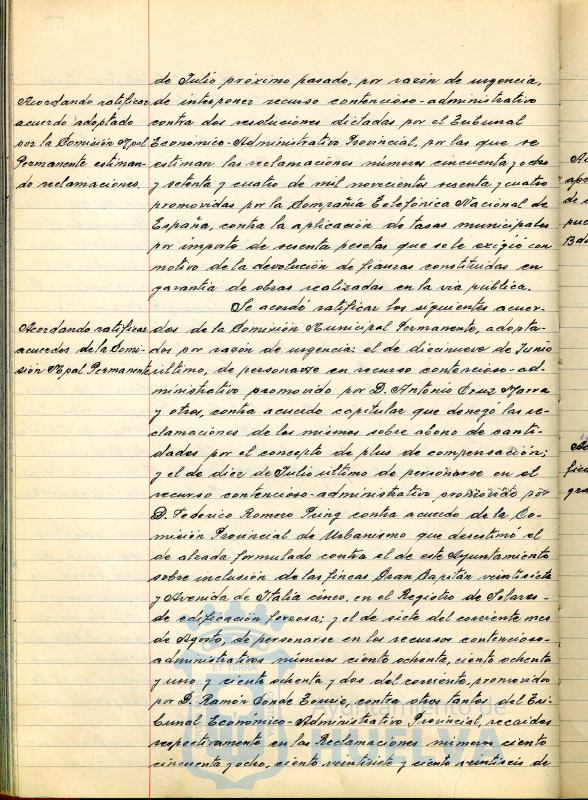 de Julio próximo pasado, por razón de urgencia,
Acordando ratificar
acuerdo adoptado
por la Comisión Mpal
Permanente estiman-
do reclamaciones.
de interponer recurso contencioso-administrativo
contra dos resoluciones dictadas por el Tribunal
Económico-Administrativo Provincial, por las que se
estiman las reclamaciones números cincuenta y ocho
y setenta y cuatro de mil novecientos sesenta y cuatro
promovidas por la Compañía Telefónica Nacional de
España, contra la aplicación de tasas municipales
por importe de sesenta pesetas que se le exigió con
motivo de la devolución de fianzas constituidas en
garantía de obras realizadas en la vía pública.
Se acordó ratificar los siguientes acuer-
Acordando ratificar
acuerdos de la Comi-
sión Mpal Permanente
dos de la Comisión Municipal Permanente, adopta-
dos por razón de urgencia: el de diecinueve de Junio
último, de personarse en recurso contencioso-ad-
ministrativo promovido por D. Antonio Cruz
y otros, contra acuerdo capitular que denegó las re-
clamaciones de los mismos sobre abono de canti-
dades por el concepto de plus de compensación;
y el de diez de Julio último de personarse en el
recurso contencioso-administrativo promovido por
D. Federico Romero contra acuerdo de la Co-
misión Provincial de Urbanismo que desestimó el
de alzada formulado contra el de este Ayuntamiento
sobre inclusión de las fincas Gran Capitán veintisiete
y Avenida de Italia cinco, en el Registro de Solares
de edificación forzosa; y el de siete del corriente mes
de Agosto, de personarse en los recursos contencioso-
administrativos números ciento ochenta, ciento ochenta
y uno y ciento ochenta y dos del corriente, promovidos
por D. Ramón Conde contra otros tantos del Tri-
bunal Económico-Administrativo Provincial, recaidos
respectivamente en las Reclamaciones números ciento
cincuenta y ocho, ciento veintisiete y ciento veintiseis de
Ayuntamiento de
HUELVA